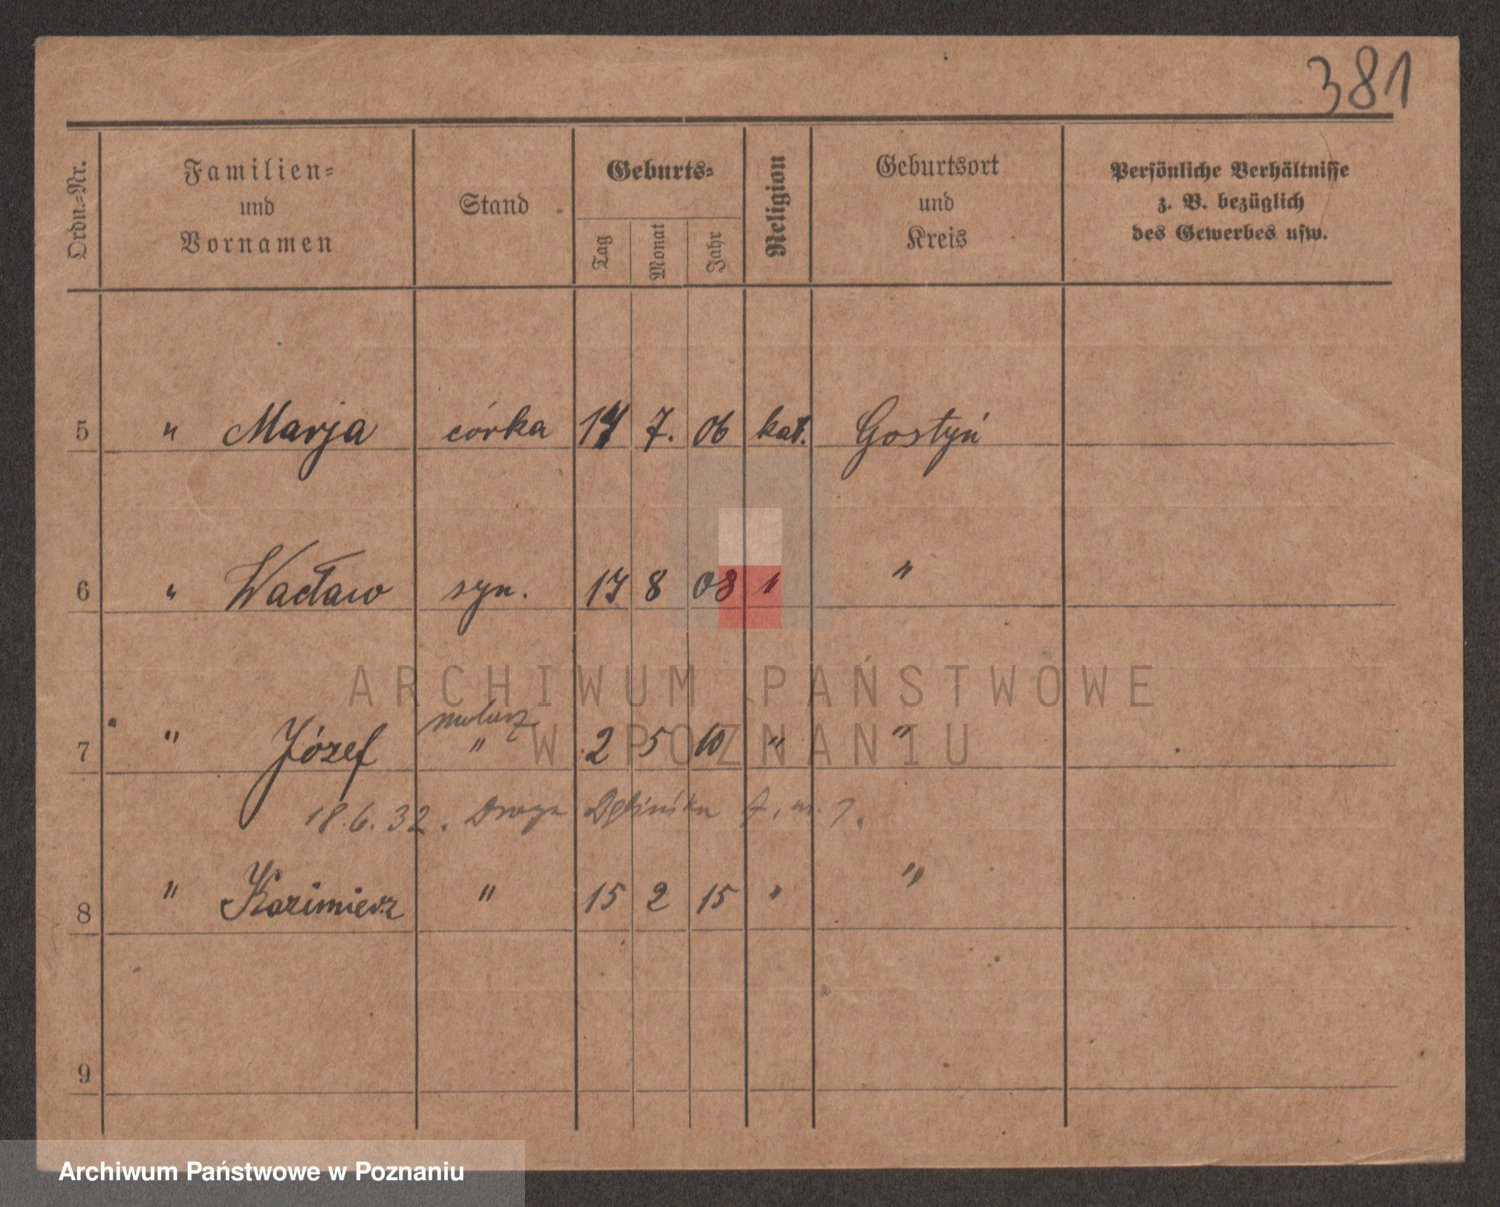 381
Ordn.-Nr.
Familien-
und
Vornamen
Stand
Geburts-
Tag
Monat
Jahr
Religion
Geburtsort
und
Kreis
Persönliche Verhältnisse
z. B. bezüglich
des Gewerbes usw.
5 " Marja córka 7. 06 kat. Gostyń
6 " Wacław syn. 17 8 03 " "
ARCHIWUM PAŃSTWOWE
W POZNANIU
7 " Józef " 2 5 10 " "
18.6.32. Droga Dębińska
8 " Kazimierz " 15 2 15 " "
9
Archiwum Państwowe w Poznaniu